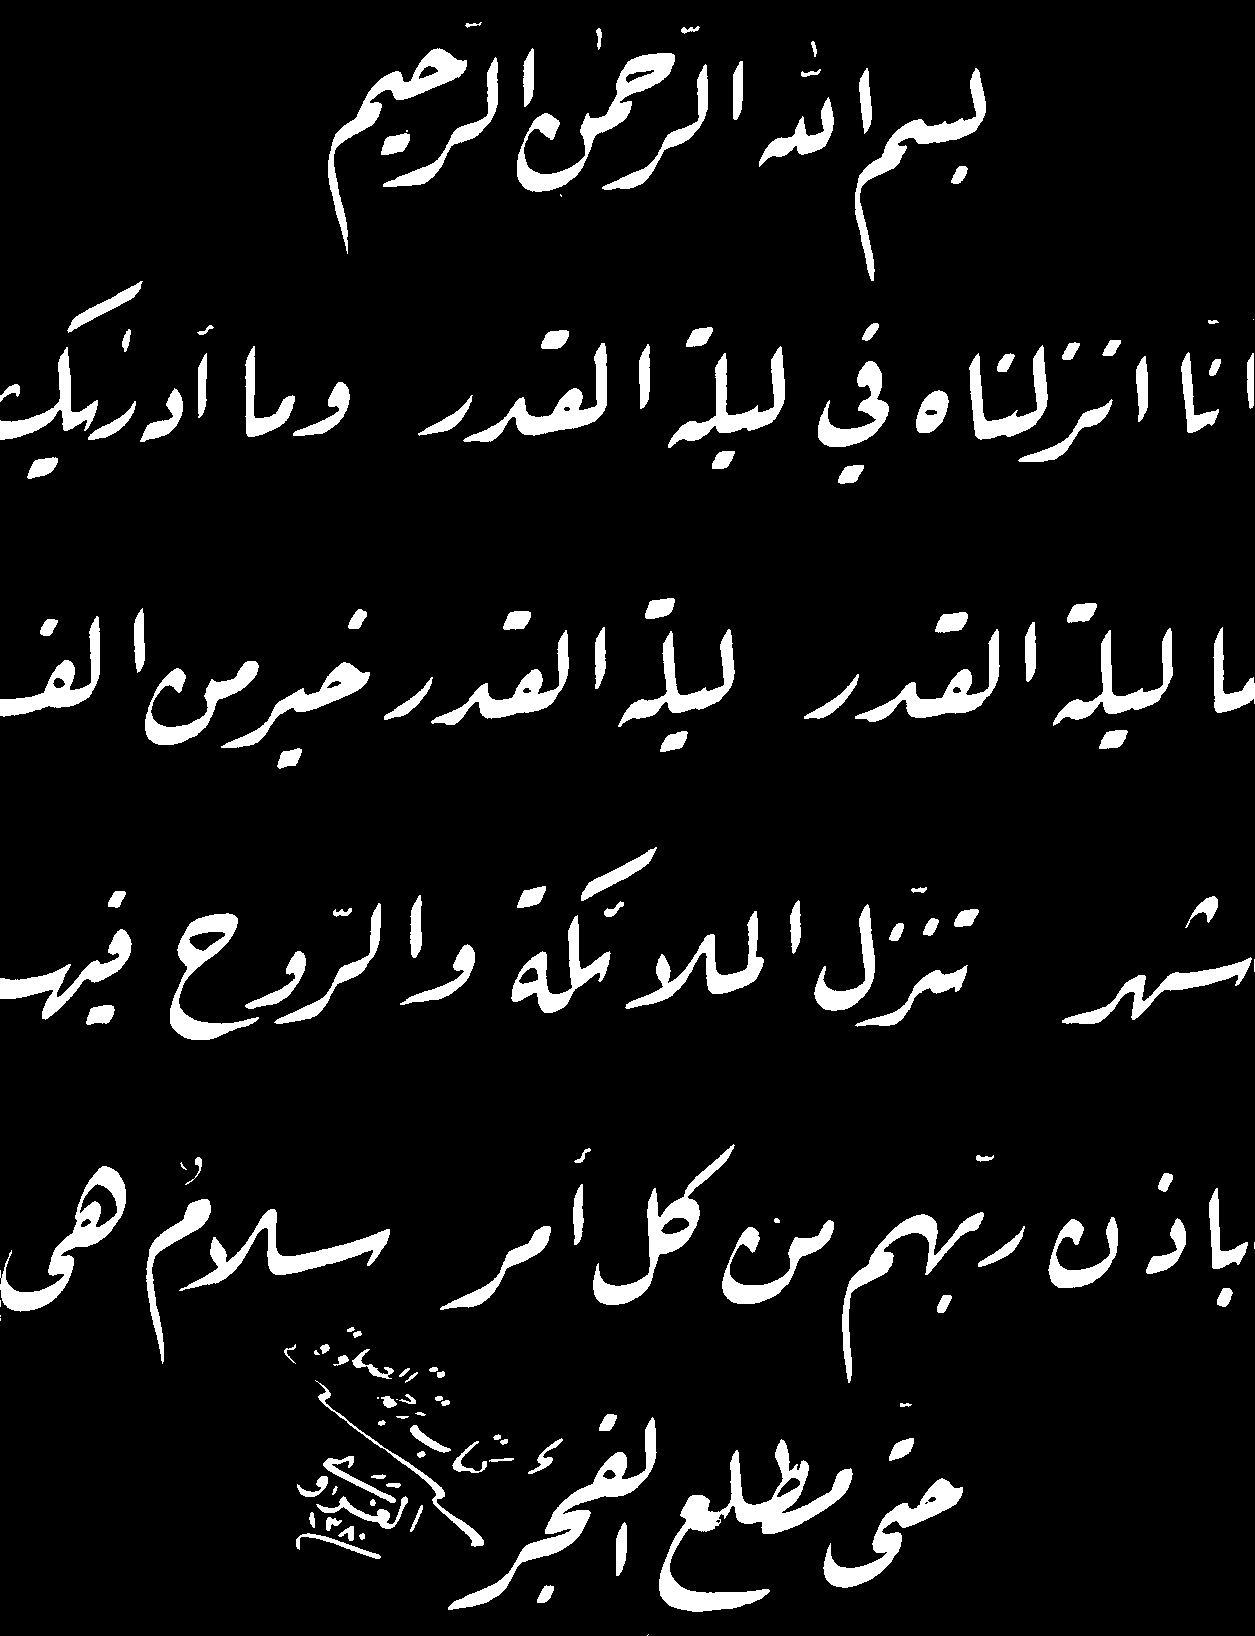 بسم الله الرّحمٰن الرّحيم
انّا انزلناه في ليلة القدر وما أدرٰيك
ما ليلة القدر ليلة القدر خير من الف
شهر تنزّل الملائكة والرّوح فيها
باذن ربّهم من كل أمر سلامٌ هي
حتّى مطلع الفجر
١٣٨٠